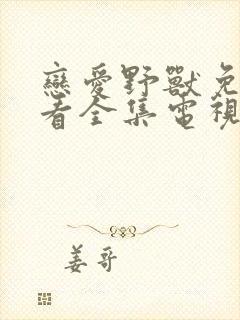 戀愛野獸免
看全集電視
姜哥